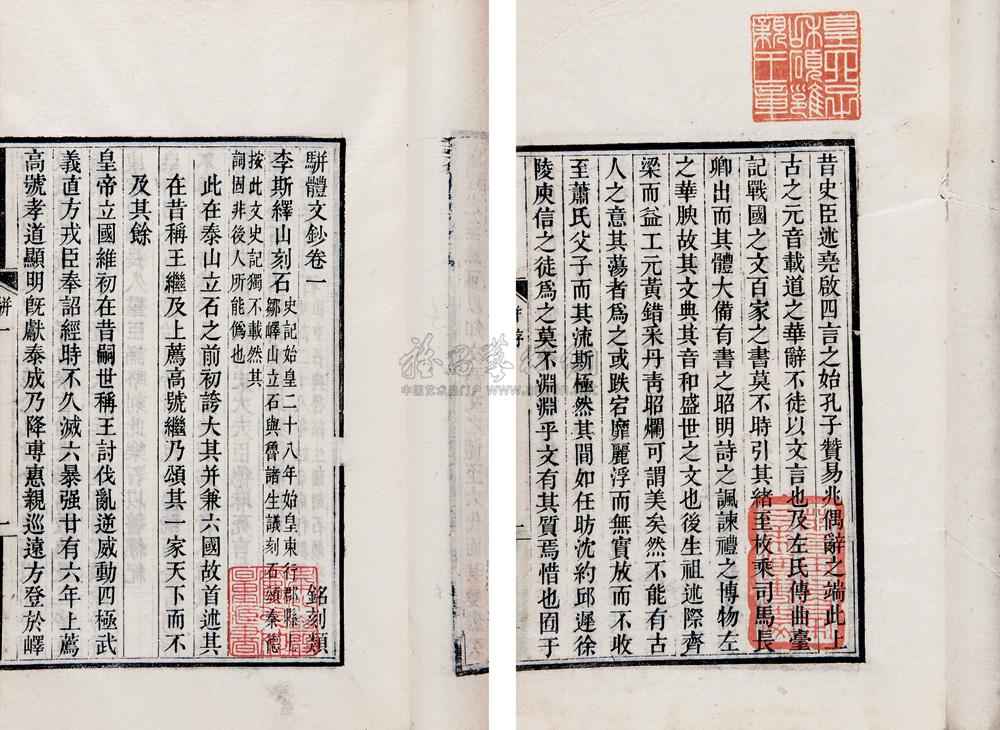 昔史臣述堯啟四言之始孔子贊易兆偶辭之端此上
古之元音載道之華辭不徒以文言也及左氏傳曲臺
記戰國之文百家之書莫不時引其緒至枚乘司馬長
卿出而其體大備有書之昭明詩之諷諫禮之博物左
之華腴故其文典其音和盛世之文也後生祖述際齊
梁而益工元黃錯采丹青昭爛可謂美矣然不能有古
人之意其蕩者爲之或跌宕靡麗浮而無實放而不收
至蕭氏父子而其流斯極然其間如任昉沈約邱遲徐
陵庾信之徒爲之莫不淵淵乎文有其質焉惜也囿于
皇六子
和碩
親王章
駢體文鈔卷一
銘刻類
李斯繹山刻石
史記始皇二十八年始皇東行郡縣上
鄒嶧山立石與魯諸生議刻石頌秦德
按此文史記獨不載然其
詞固非後人所能僞也
此在泰山立石之前初誇大其并兼六國故首述其
在昔稱王繼及上薦高號繼乃頌其一家天下而不
及其餘
皇帝立國維初在昔嗣世稱王討伐亂逆威動四極武
義直方戎臣奉詔經時不久滅六暴强廿有六年上薦
高號孝道顯明旣獻泰成乃降專惠親巡遠方登於嶧
駢一
一
中国艺术品门户